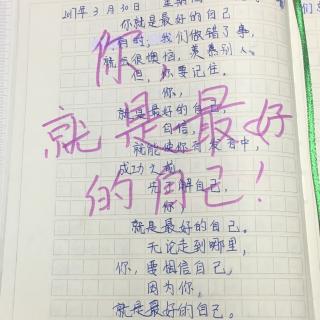 2017年3月30日 星期
你就是最好的自己
有时,我们做错了事,
就会很烦恼,羡慕别人。
但,你要记住。
你,
就是最好的自己。
自信,
就能使你
成功
了解自己,
你,
就是最好的自己。
无论走到哪里,
你,要相信自己,
因为你,
就是最好的自己。
你
就是最好
的自己!